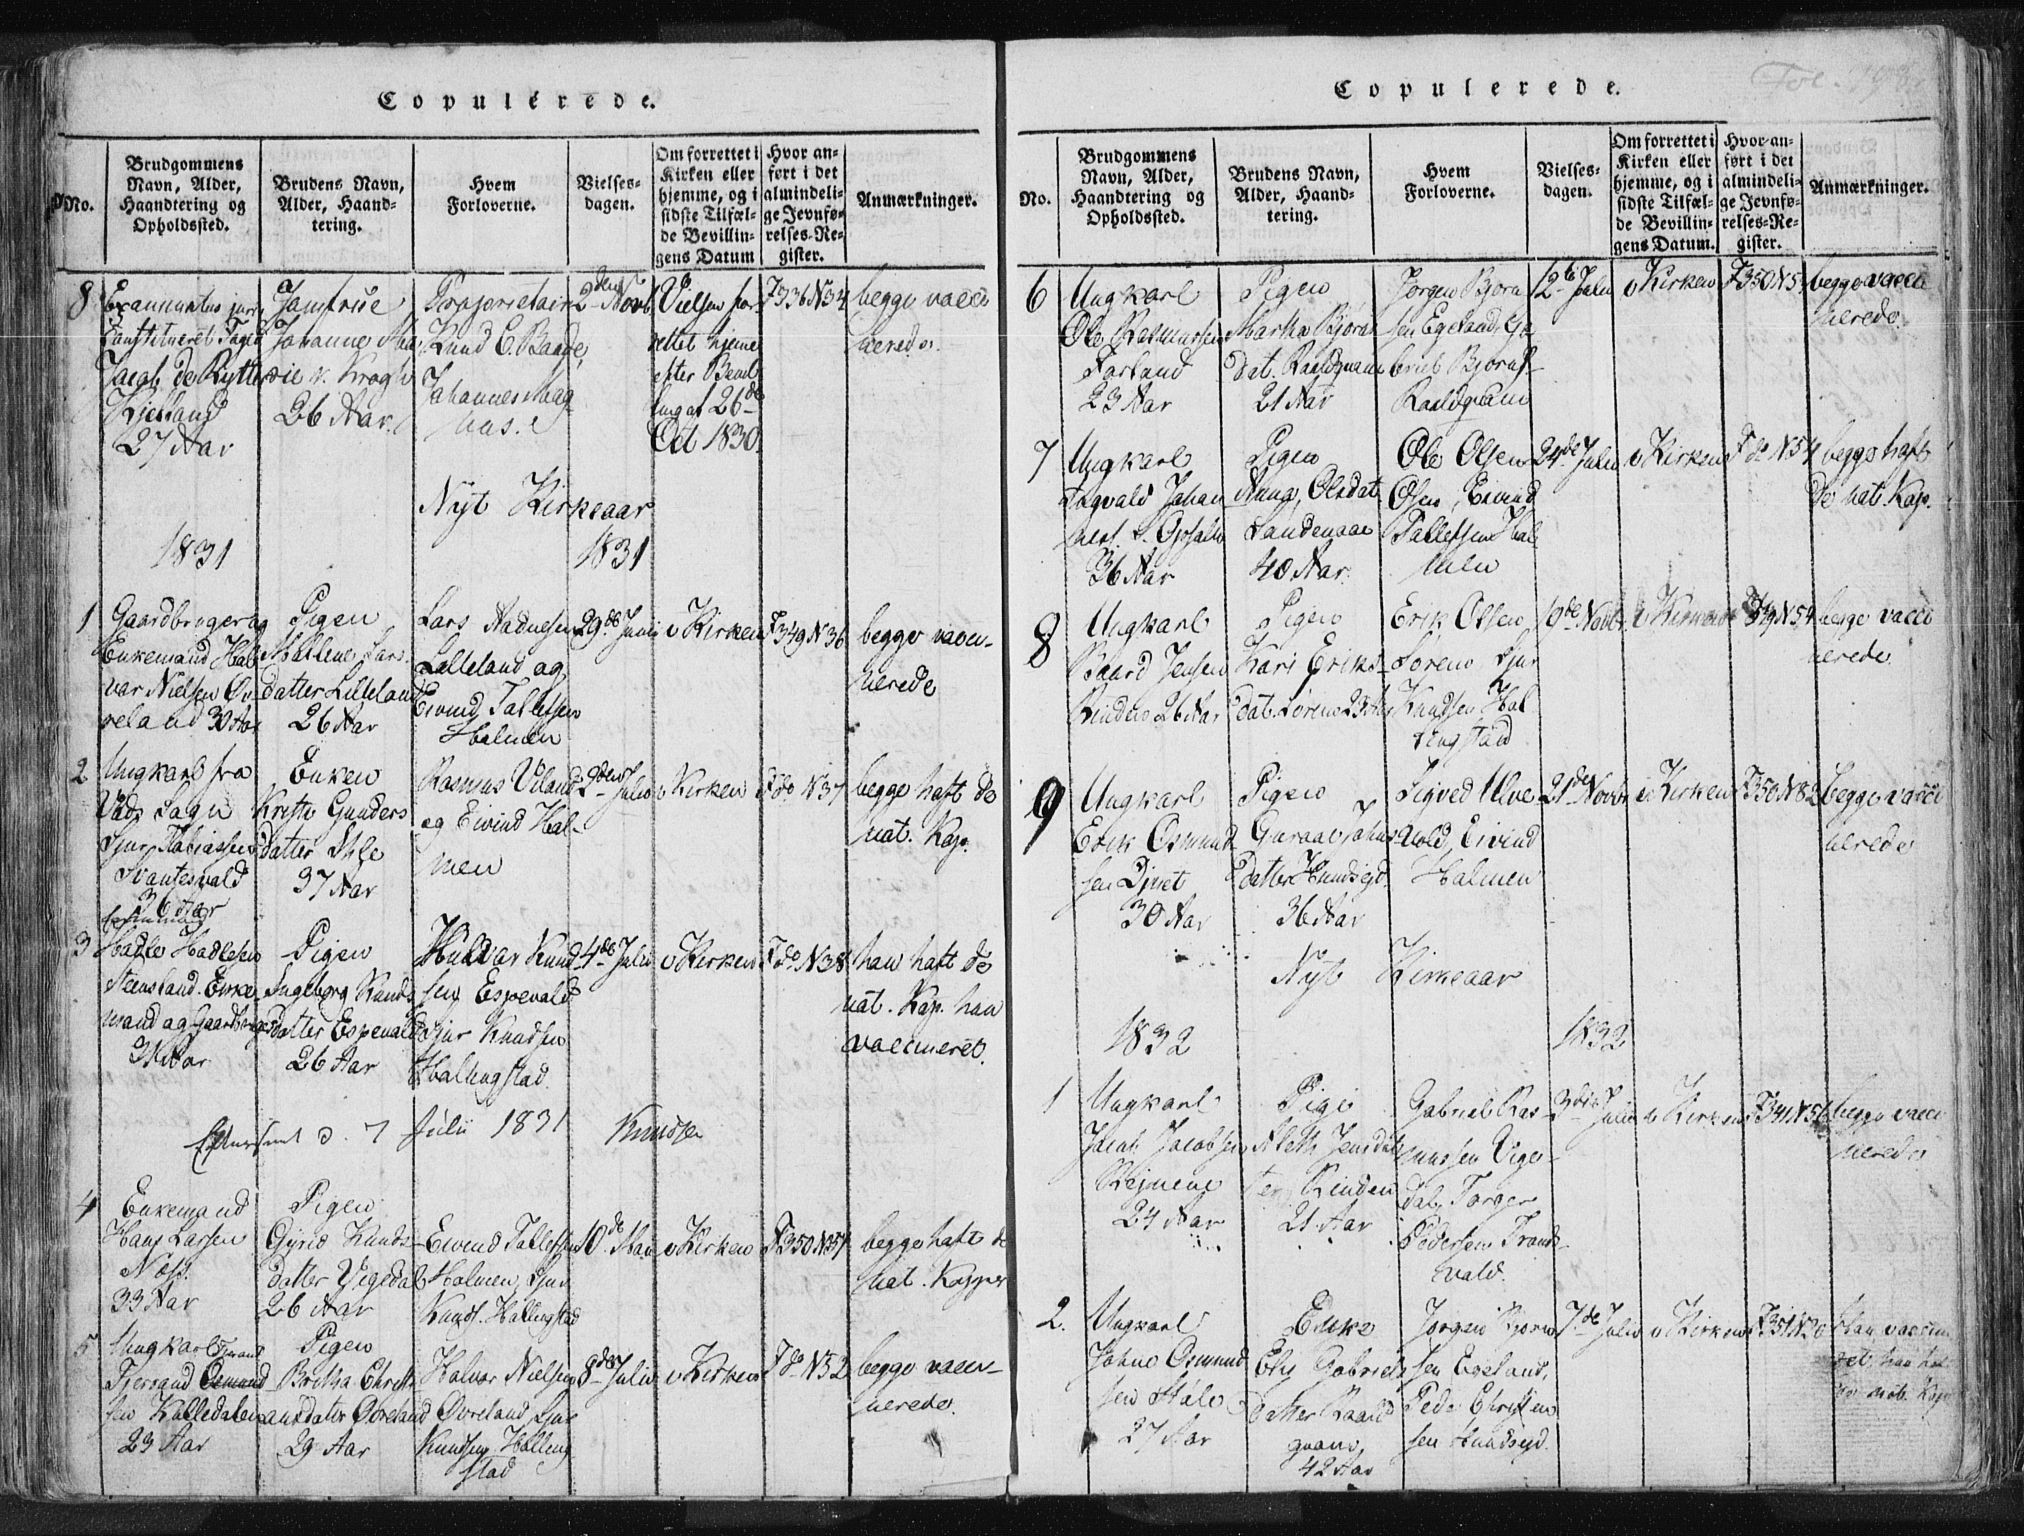 Copulerede.
No.
Brudgommens Navn, Alder, Haandtering og Opholdssted.
Brudens Navn, Alder, Haandtering.
Hvem Forloverne.
Vielsesdagen.
Om forrettet i Kirken eller hjemme, og i sidste Tilfælde Bevillingens Datum
Hvor anført i det almindelige Jevnførelses-Register.
Anmærkninger.
8
Examinatus juris
Constitueret
Jacob de Rytter
Kjelland
27 Aar
Jomfrue
Johanne Ma
rie v. Krogh
26 Aar.
Proprietair
Knud C. Baade,
Johannes
2den Novb
Vielsen for-
rettet hjeme
efter Bevil
ling af 26de
Oct 1830.
F336 N34
begge vacci
nerede.
Nyt Kirkeaar
1831
1831
1
Gaardbruger og
Enkemand Hal
var Nielsen Øv
reland 30 Aar
Pigen
Malene Lars
datter Lilleland
26 Aar
Lars Aadnesen
Lilleland og
Eivind Tallefsen
Holmen
29de Junii
i Kirken
F349 N36
begge vacci-
nerede
2
Ungkarl fra
Vads Sogn
Sjur Tobiassen
Svantesvald
36 Aar
Enken
Gunders
datter
37 Aar
Rasmus
og Eivind Hol-
men
2den Julii
i Kirken
F do N37
begge haft de
nat. Kop.
3
Hadle Hadlesen
Steensland. Enke
mand og Gaardbruger
Aar
Pigen
Ingeborg Knuds
datter Espevald
26 Aar
Halvar Knud
sen Espevald
Sjur Knudsen
Hallingstad.
4de Julii
i Kirken
F do N38
han haft de
nat. Kop. hun
vaccineret.
d. 7 Julii 1831 Knudsen
4
Enkemand
Hans Larsen
Næss.
33 Aar
Pigen
Gyrid Knuds-
datter Vigedal
26 Aar
Eivind Tallefsen
Holmen, Sjur
Knuds. Hallingstad
10de Mai
i Kirken
F350 N57
begge haft de
nat. Kopper
5
Ungkarl
23 Aar
Pigen
Britha Christi
ansdatter Øvreland
29 Aar
Halvor Nielsen
Øvreland, Sjur
Knudsen Halling
stad
8de Julii
i Kirken
F do N52
begge vacci-
nerede.
Copulerede.
Fol.
No.
Brudgommens Navn, Alder, Haandtering og Opholdssted.
Brudens Navn, Alder, Haandtering.
Hvem Forloverne.
Vielsesdagen.
Om forrettet i Kirken eller hjemme, og i sidste Tilfælde Bevillingens Datum.
Hvor anført i det almindelige Jevnførelses-Register.
Anmærkninger.
6
Ungkarl
Ole Rasmussen
Forland
23 Aar
Pigen
Martha Bjørns
dat.
21 Aar
Jørgen Bjørn
sen Egeland, Ga
briel Bjørns.
12te Julii
i Kirken
F350 N5
begge vacci
nerede.
7
Ungkarl
Johan
nes.
36 Aar
Pigen
Anna Olsdat
40 Aar.
Ole Olsen
Olsen, Eivind
Tallefsen Hol
men
24de Julii
i Kirken
F do N54
begge haft
de nat. Kop.
8
Ungkarl
Baard Jensen
Rinden 26 Aar
Pigen
Kari Eriks-
dat. Lørene 23 Aar
Erik Olsen
Lørene Sjur
Knudsen Hal
lingstad
10de Novbr.
i Kirken
F349 N54
begge vacci
nerede.
9
Ungkarl
Erik Osmund
sen
30 Aar
Pigen
Guraae Johns
datter Hundseid.
36 Aar
Sigved Ulve
vold, Eivind
Holmen
21de Novbr
i Kirken
F350 N82
begge vacci
nerede
Nyt Kirkeaar
1832
1832
1
Ungkarl
Jacob Jacobsen
24 Aar
Pige
Aleth Jensdat
ter Rinden
21 Aar
Gabriel Ras-
mussen Vige-
dal, Torger
Pedersen Trands-
vald.
3die Julii
i Kirken
F341 N56
begge vacci
nerede.
2.
Ungkarl
Johne Osmund
sen
27 Aar
Enke
Elen Gabriels
datter
42 Aar
Jørgen Bjørn
sen Egeland,
Peder Christen
sen Hundseid.
7de Julii
i Kirken
F351 N20
Han vaccine
ret, hun haf
de nat. Kop